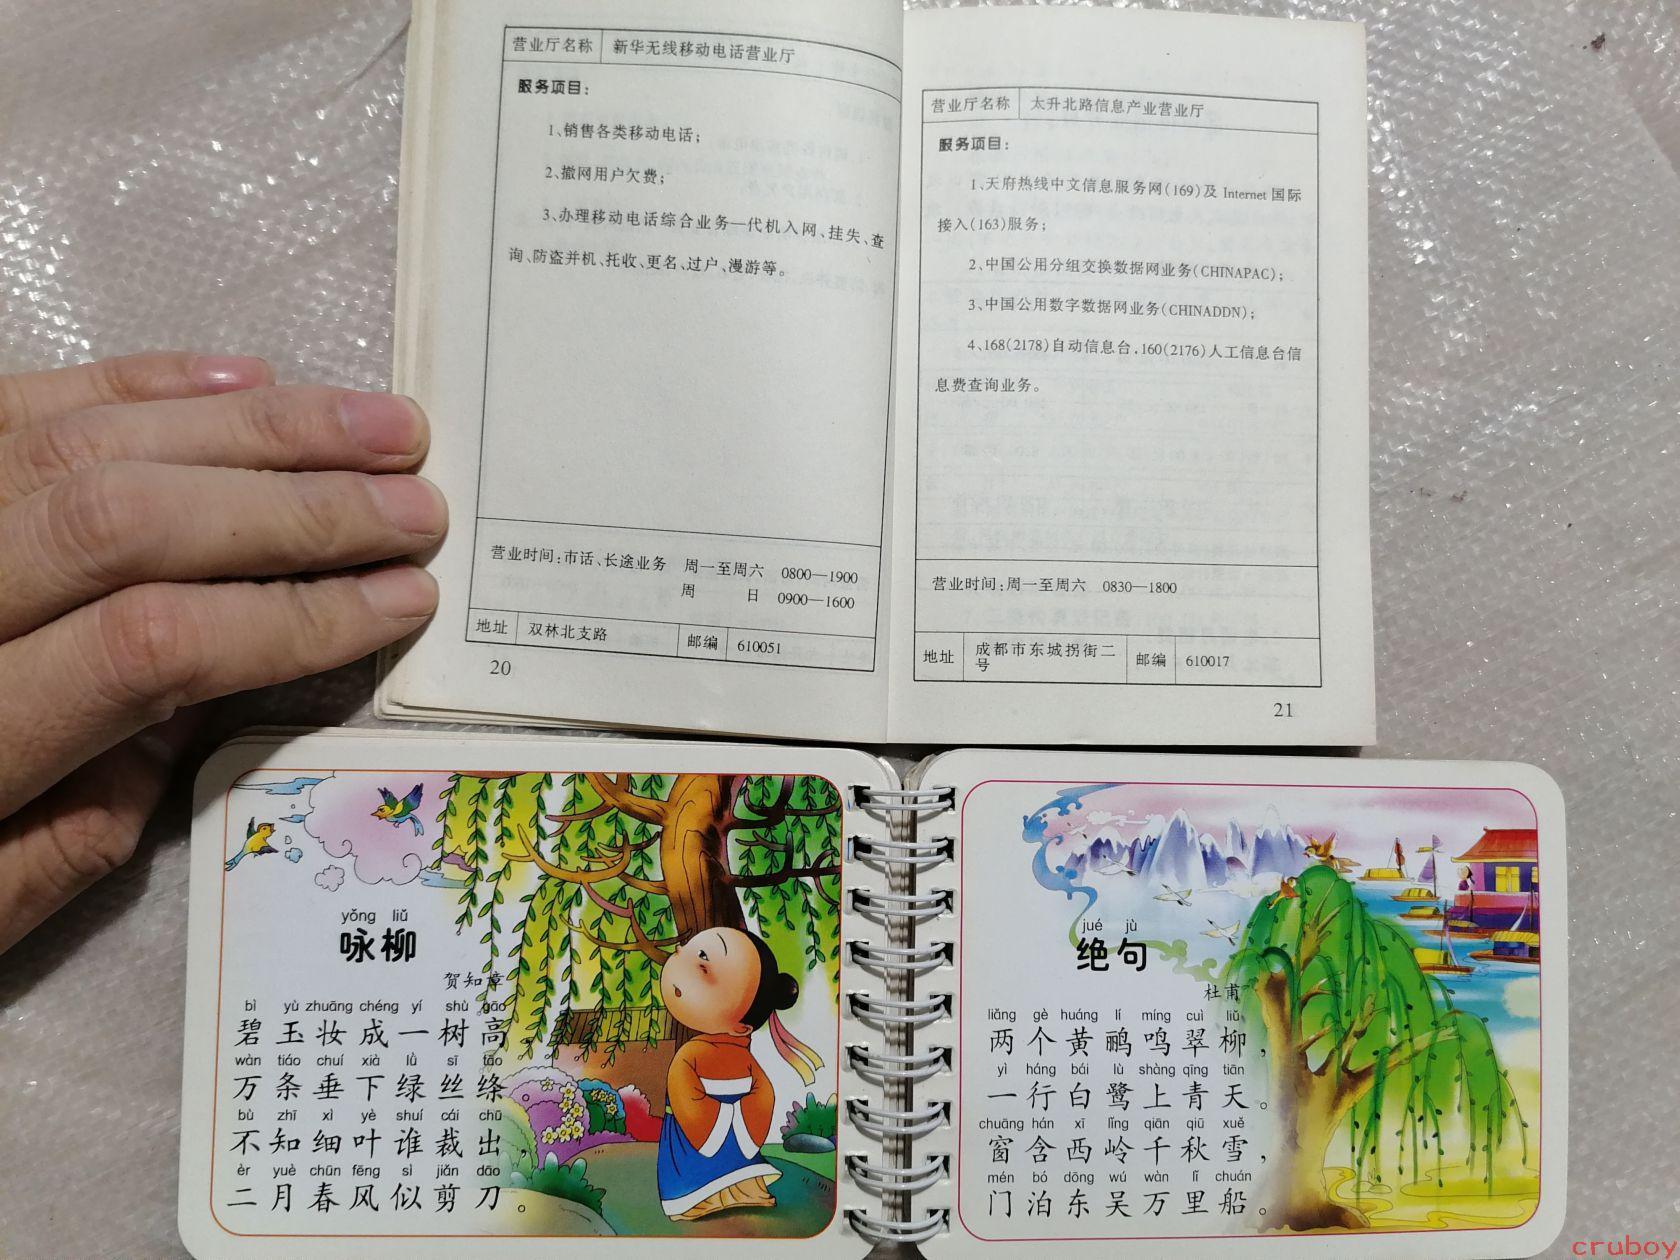 营业厅名称 新华无线移动电话营业厅
服务项目:
1、销售各类移动电话;
2、撤网用户欠费;
3、办理移动电话综合业务—代机入网、挂失、查
询、防盗并机、托收、更名、过户、漫游等。
营业时间:市话、长途业务 周一至周六 0800—1900
周 日 0900—1600
地址 双林北支路 邮编 610051
20
营业厅名称 太升北路信息产业营业厅
服务项目:
1、天府热线中文信息服务网(169)及 Internet 国际
接入(163)服务;
2、中国公用分组交换数据网业务(CHINAPAC);
3、中国公用数字数据网业务(CHINADDN);
4、168(2178)自动信息台,160(2176)人工信息台信
息费查询业务。
营业时间:周一至周六 0830—1800
地址 成都市东城拐街二
号 邮编 610017
21
yǒng liǔ
咏柳
贺知章
bì yù zhuāng chéng yí shù gāo
碧玉妆成一树高,
wàn tiáo chuí xià lǜ sī tāo
万条垂下绿丝绦
bù zhī xì yè shuí cái chū
不知细叶谁裁出,
èr yuè chūn fēng sì jiǎn dāo
二月春风似剪刀。
jué jù
绝句
杜甫
liǎng gè huáng lí míng cuì liǔ
两个黄鹂鸣翠柳,
yì háng bái lù shàng qīng tiān
一行白鹭上青天。
chuāng hán xī lǐng qiān qiū xuě
窗含西岭千秋雪,
mén bó dōng wú wàn lǐ chuán
门泊东吴万里船。
cruboy